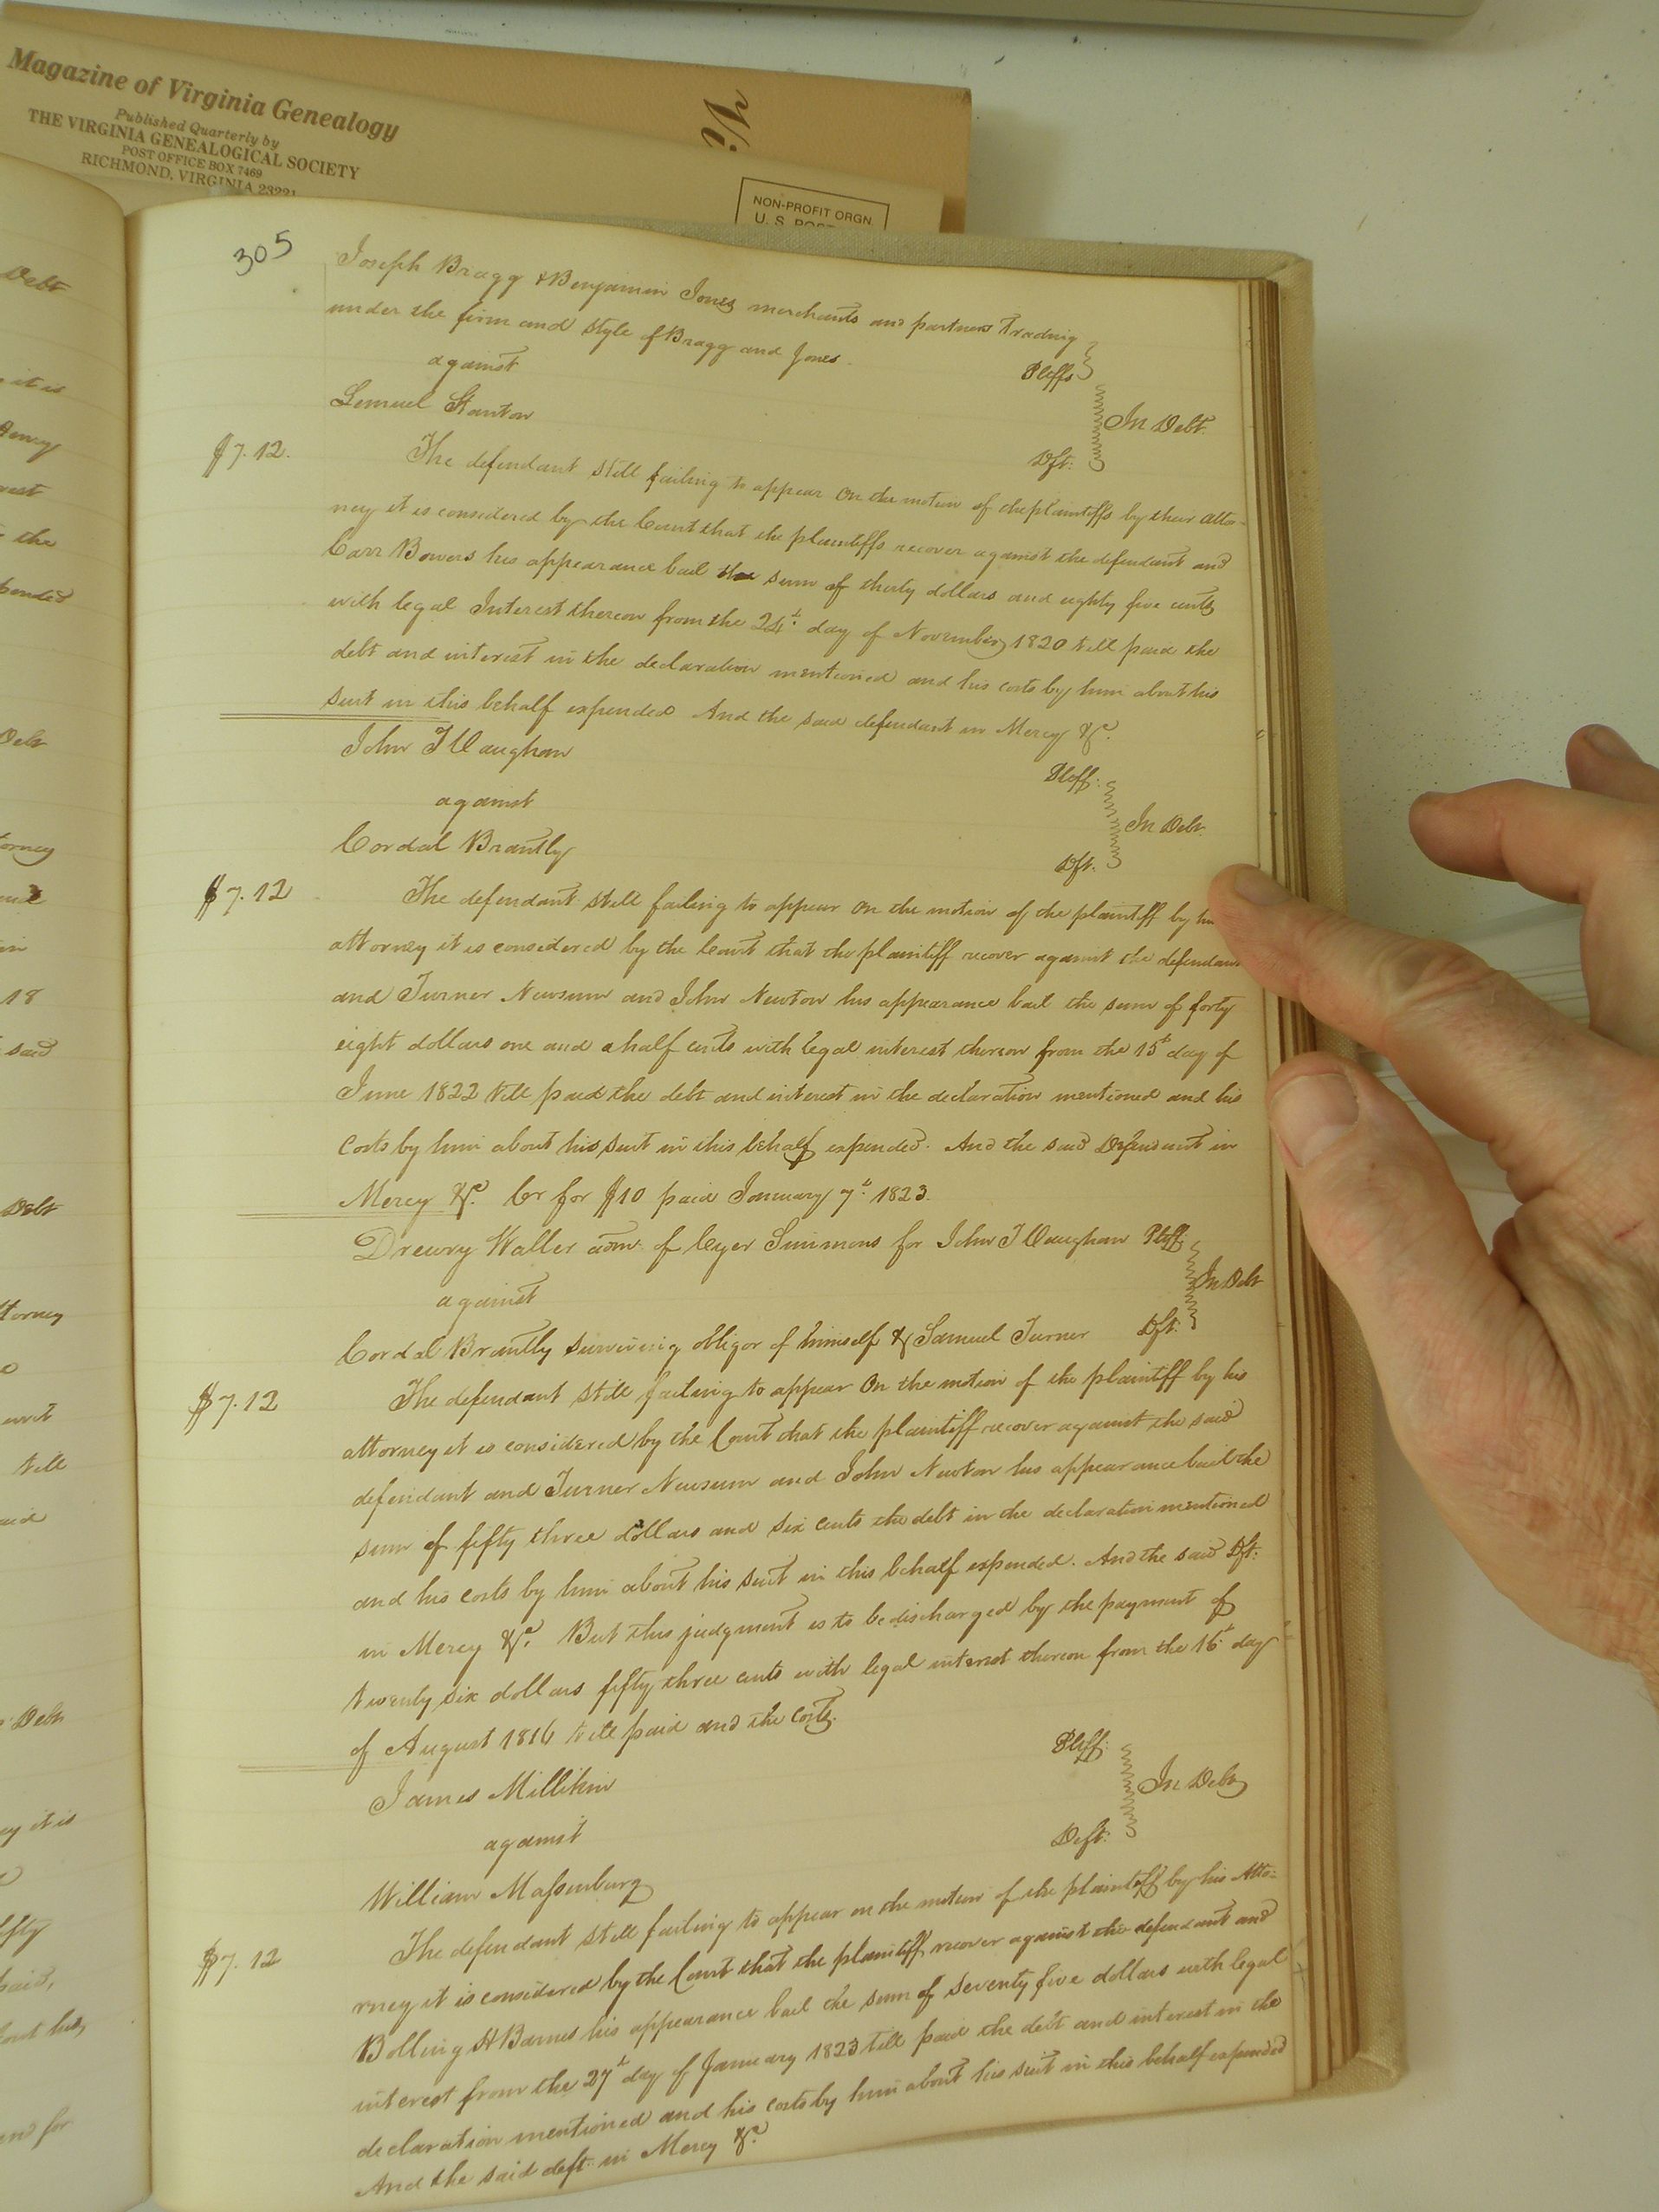 Magazine of Virginia Genealogy
Published Quarterly by
THE VIRGINIA GENEALOGICAL SOCIETY
POST OFFICE BOX 7469
RICHMOND, VIRGINIA 23221
NON-PROFIT ORGN
U. S. POST
Debt
it is
the
Debt
orney
18
said
Debt
ttorney
till
Debt
ey it is
fifty
paid,
and for
305
Joseph Bragg & Benjamin Jones merchants and partners Trading
under the firm and style of Bragg and Jones
Pltffs
against
In Debt
Lemuel Stanton
Dft:
$7.12.
The defendant still failing to appear On the motion of the plaintiffs by their atto-
rney it is considered by the Court that the plaintiffs recover against the defendant and
Carr Bowers his appearance bail the sum of thirty dollars and eighty five cents
with legal Interest thereon from the 24t. day of November 1820 till paid the
debt and interest in the declaration mentioned and his costs by him about his
suit in this behalf expended And the said defendant in Mercy &c.
John T Vaughan
Pltff:
against
In Debt.
Cordal Brantly
Dft.
$7.12
The defendant still failing to appear On the motion of the plaintiff by
attorney it is considered by the Court that the plaintiff recover against the defendant
and Turner Newsum and John Newton his appearance bail the sum of forty
eight dollars one and a half cents with legal interest thereon from the 15t day of
June 1822 till paid the debt and interest in the declaration mentioned and his
Costs by him about his suit in this behalf expended. And the said Defendant in
Mercy &c. Cr for $10 paid January 7t. 1823.
Drewry Waller adm: of Cyer Simmons for John T Vaughan Pltff:
against
In Debt
Cordal Brantly surviving obligor of himself & Samuel Turner Dft.
$7.12
The defendant still failing to appear On the motion of the plaintiff by his
attorney it is considered by the Court that the plaintiff recover against the said
defendant and Turner Newsum and John Newton his appearance bail the
sum of fifty three dollars and six cents the debt in the declaration mentioned
and his costs by him about his suit in this behalf expended. And the said Dft:
in Mercy &c. But this judgment is to be discharged by the payment of
twenty six dollars fifty three cents with legal interest thereon from the 16t. day
of August 1816 till paid and the Costs.
James Millikin
Pltff:
against
In Debt
William Massenburg
Deft:
$7.12
The defendant still failing to appear on the motion of the plaintiff by his Atto-
rney it is considered by the Court that the plaintiff recover against the defendant and
Bolling H Barnes his appearance bail the sum of seventy five dollars with legal
interest from the 27t day of January 1823 till paid the debt and interest in the
declaration mentioned and his costs by him about his suit in this behalf expended
And the said deft. in Mercy &c.